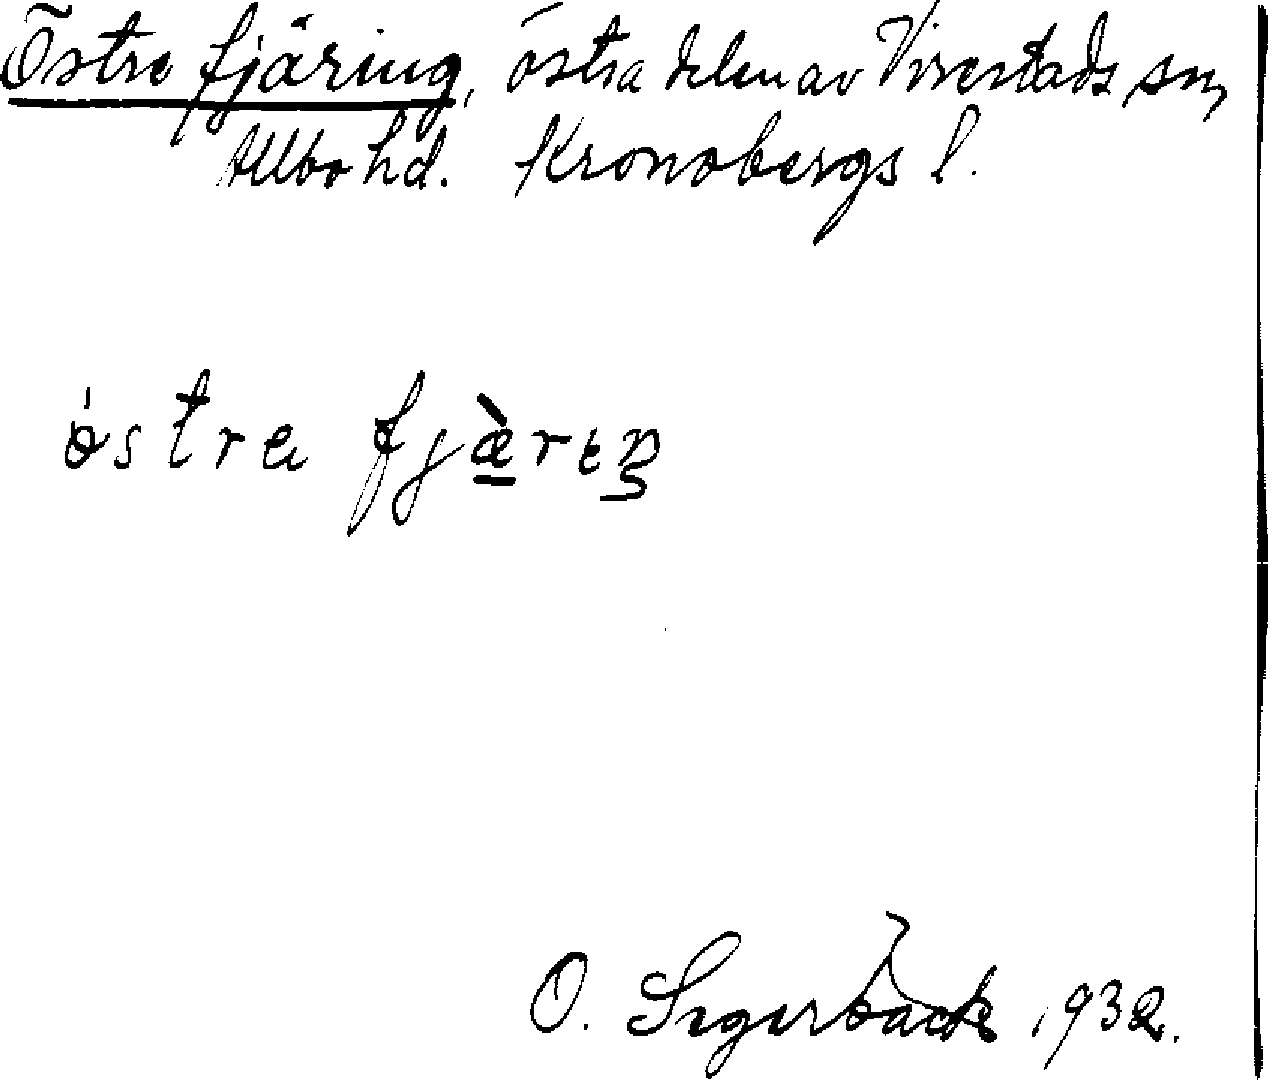 Östre fjäring, östra delen av Virestads sn,
Allbo hd. Kronobergs l.
östra fjæreŋ
O. Segerbäck 1932.